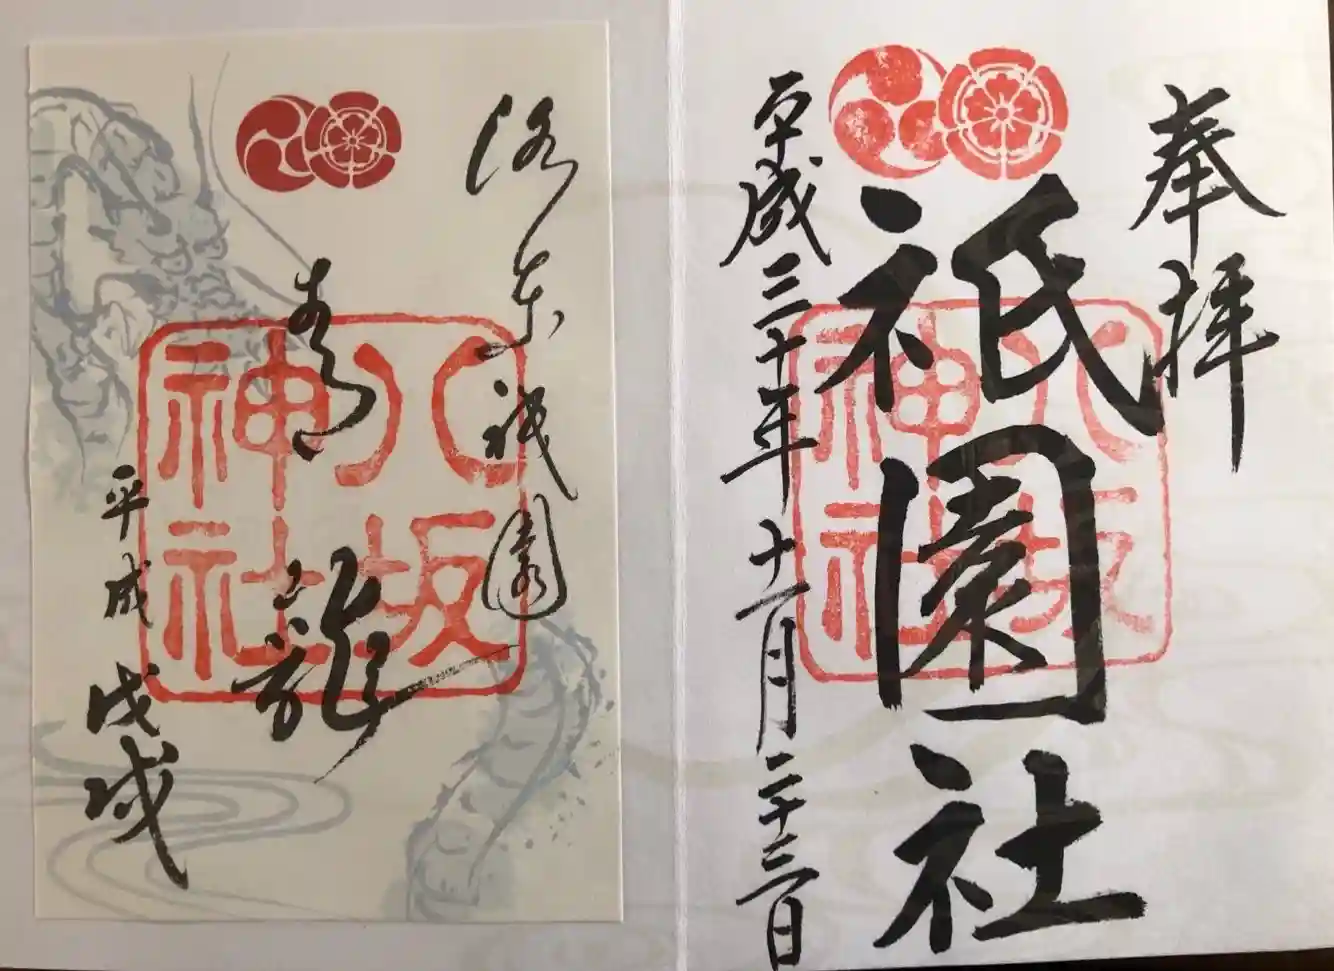 奉拝
祇園社
八坂神社
平成三十年十一月二十三日
洛東祇園
青龍
八坂神社
平成戊戌